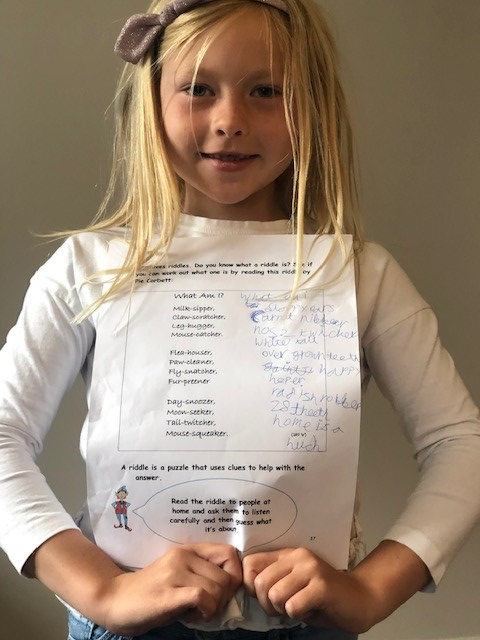 ves riddles. Do you know what a riddle is? See if
you can work out what one is by reading this riddle by
Pie Corbett:
What Am I?
Milk-sipper,
Claw-scratcher,
Leg-hugger,
Mouse-catcher.
Flea-houser,
Paw-cleaner,
Fly-snatcher,
Fur-preener
Day-snoozer,
Moon-seeker,
Tail-twitcher,
Mouse-squeaker.
What am I?
ears
Carrot nibbler
nose twitcher
white tail
over grown teeth
happy
hoper
radish robber
28 theeth
home is a
huch
A riddle is a puzzle that uses clues to help with the
answer.
Read the riddle to people at
home and ask them to listen
carefully and then guess what
it's about